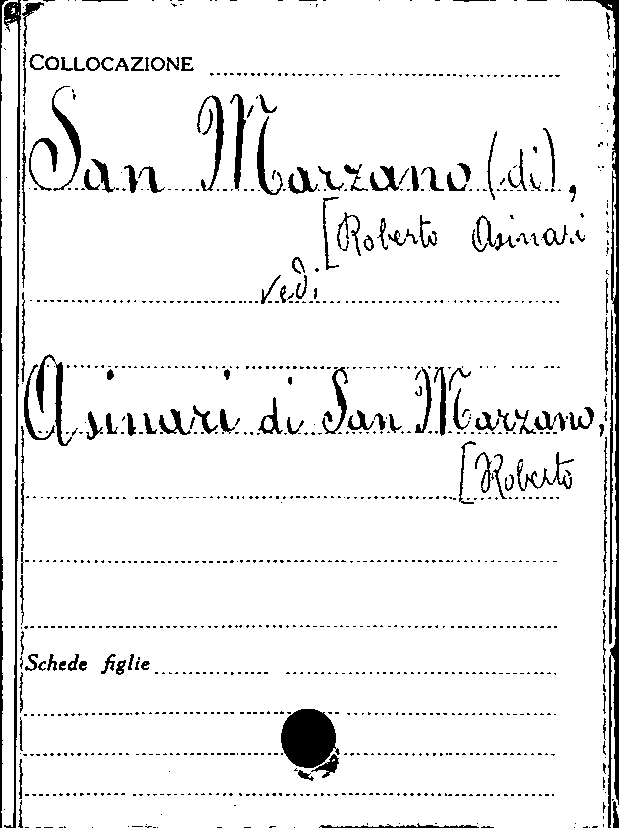 COLLOCAZIONE
San Marzano (di),
[Roberto Asinari
vedi
Asinari di San Marzano,
[Roberto
Schede figlie